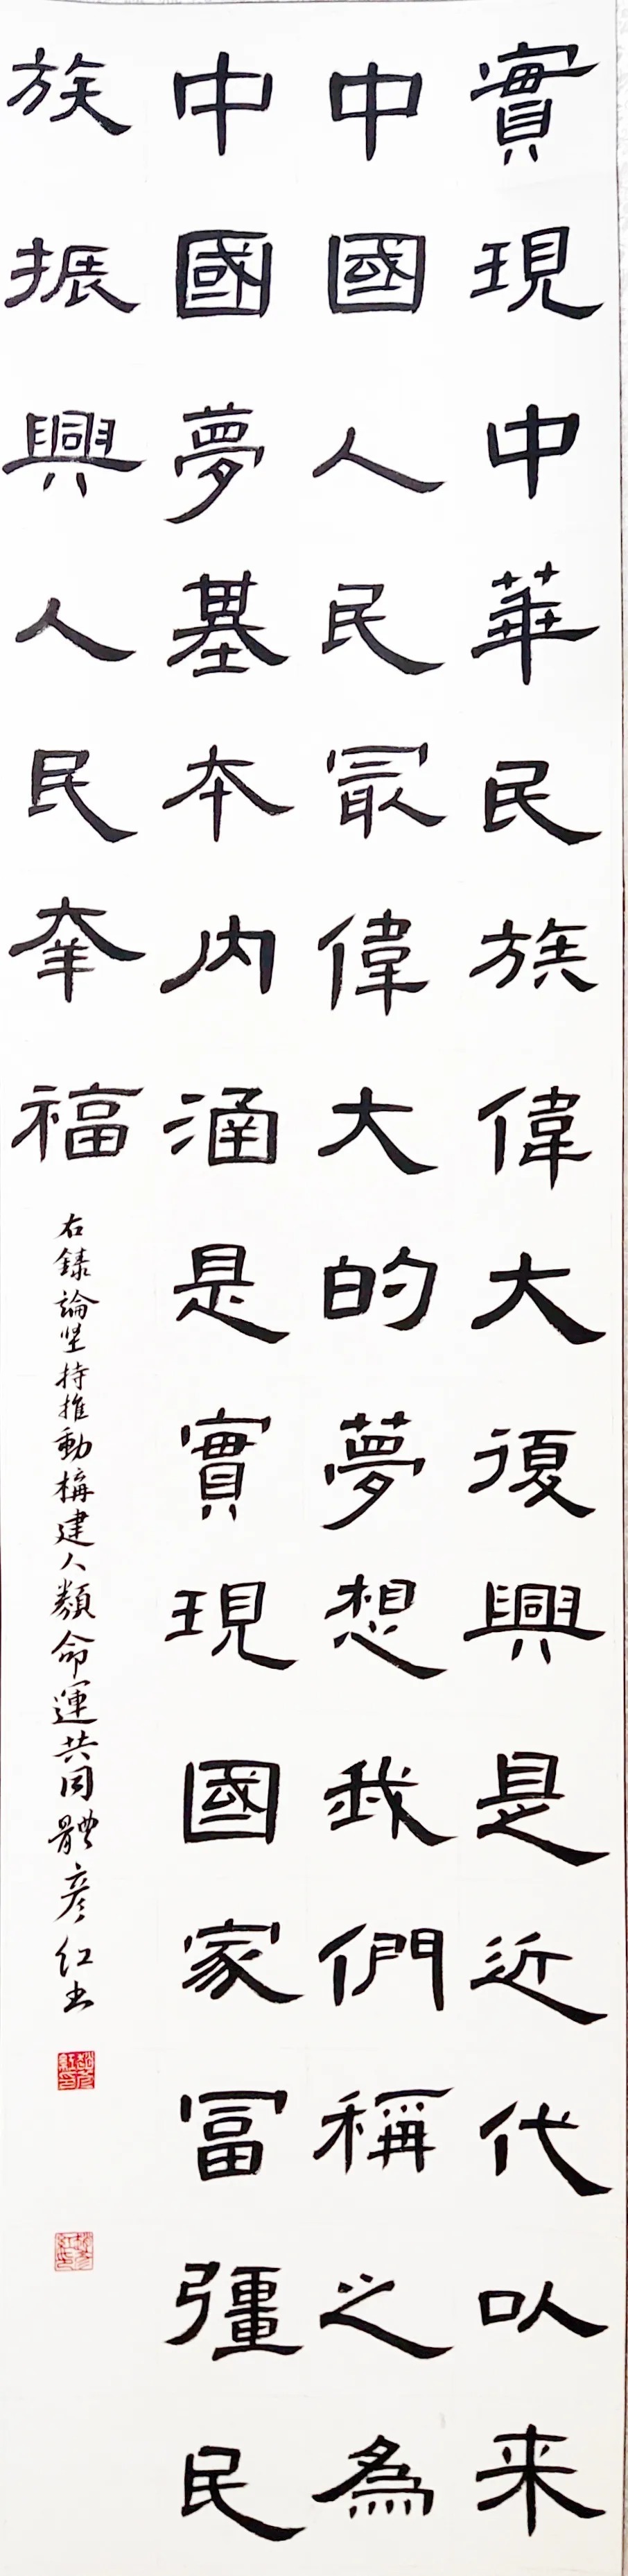 實現中華民族偉大復興是近代以来
中國人民冣偉大的夢想我們稱之為
中國夢基本内涵是實現國家冨彊民
族振興人民幸福
右録論坚持推動構建人類命運共同體彦红书